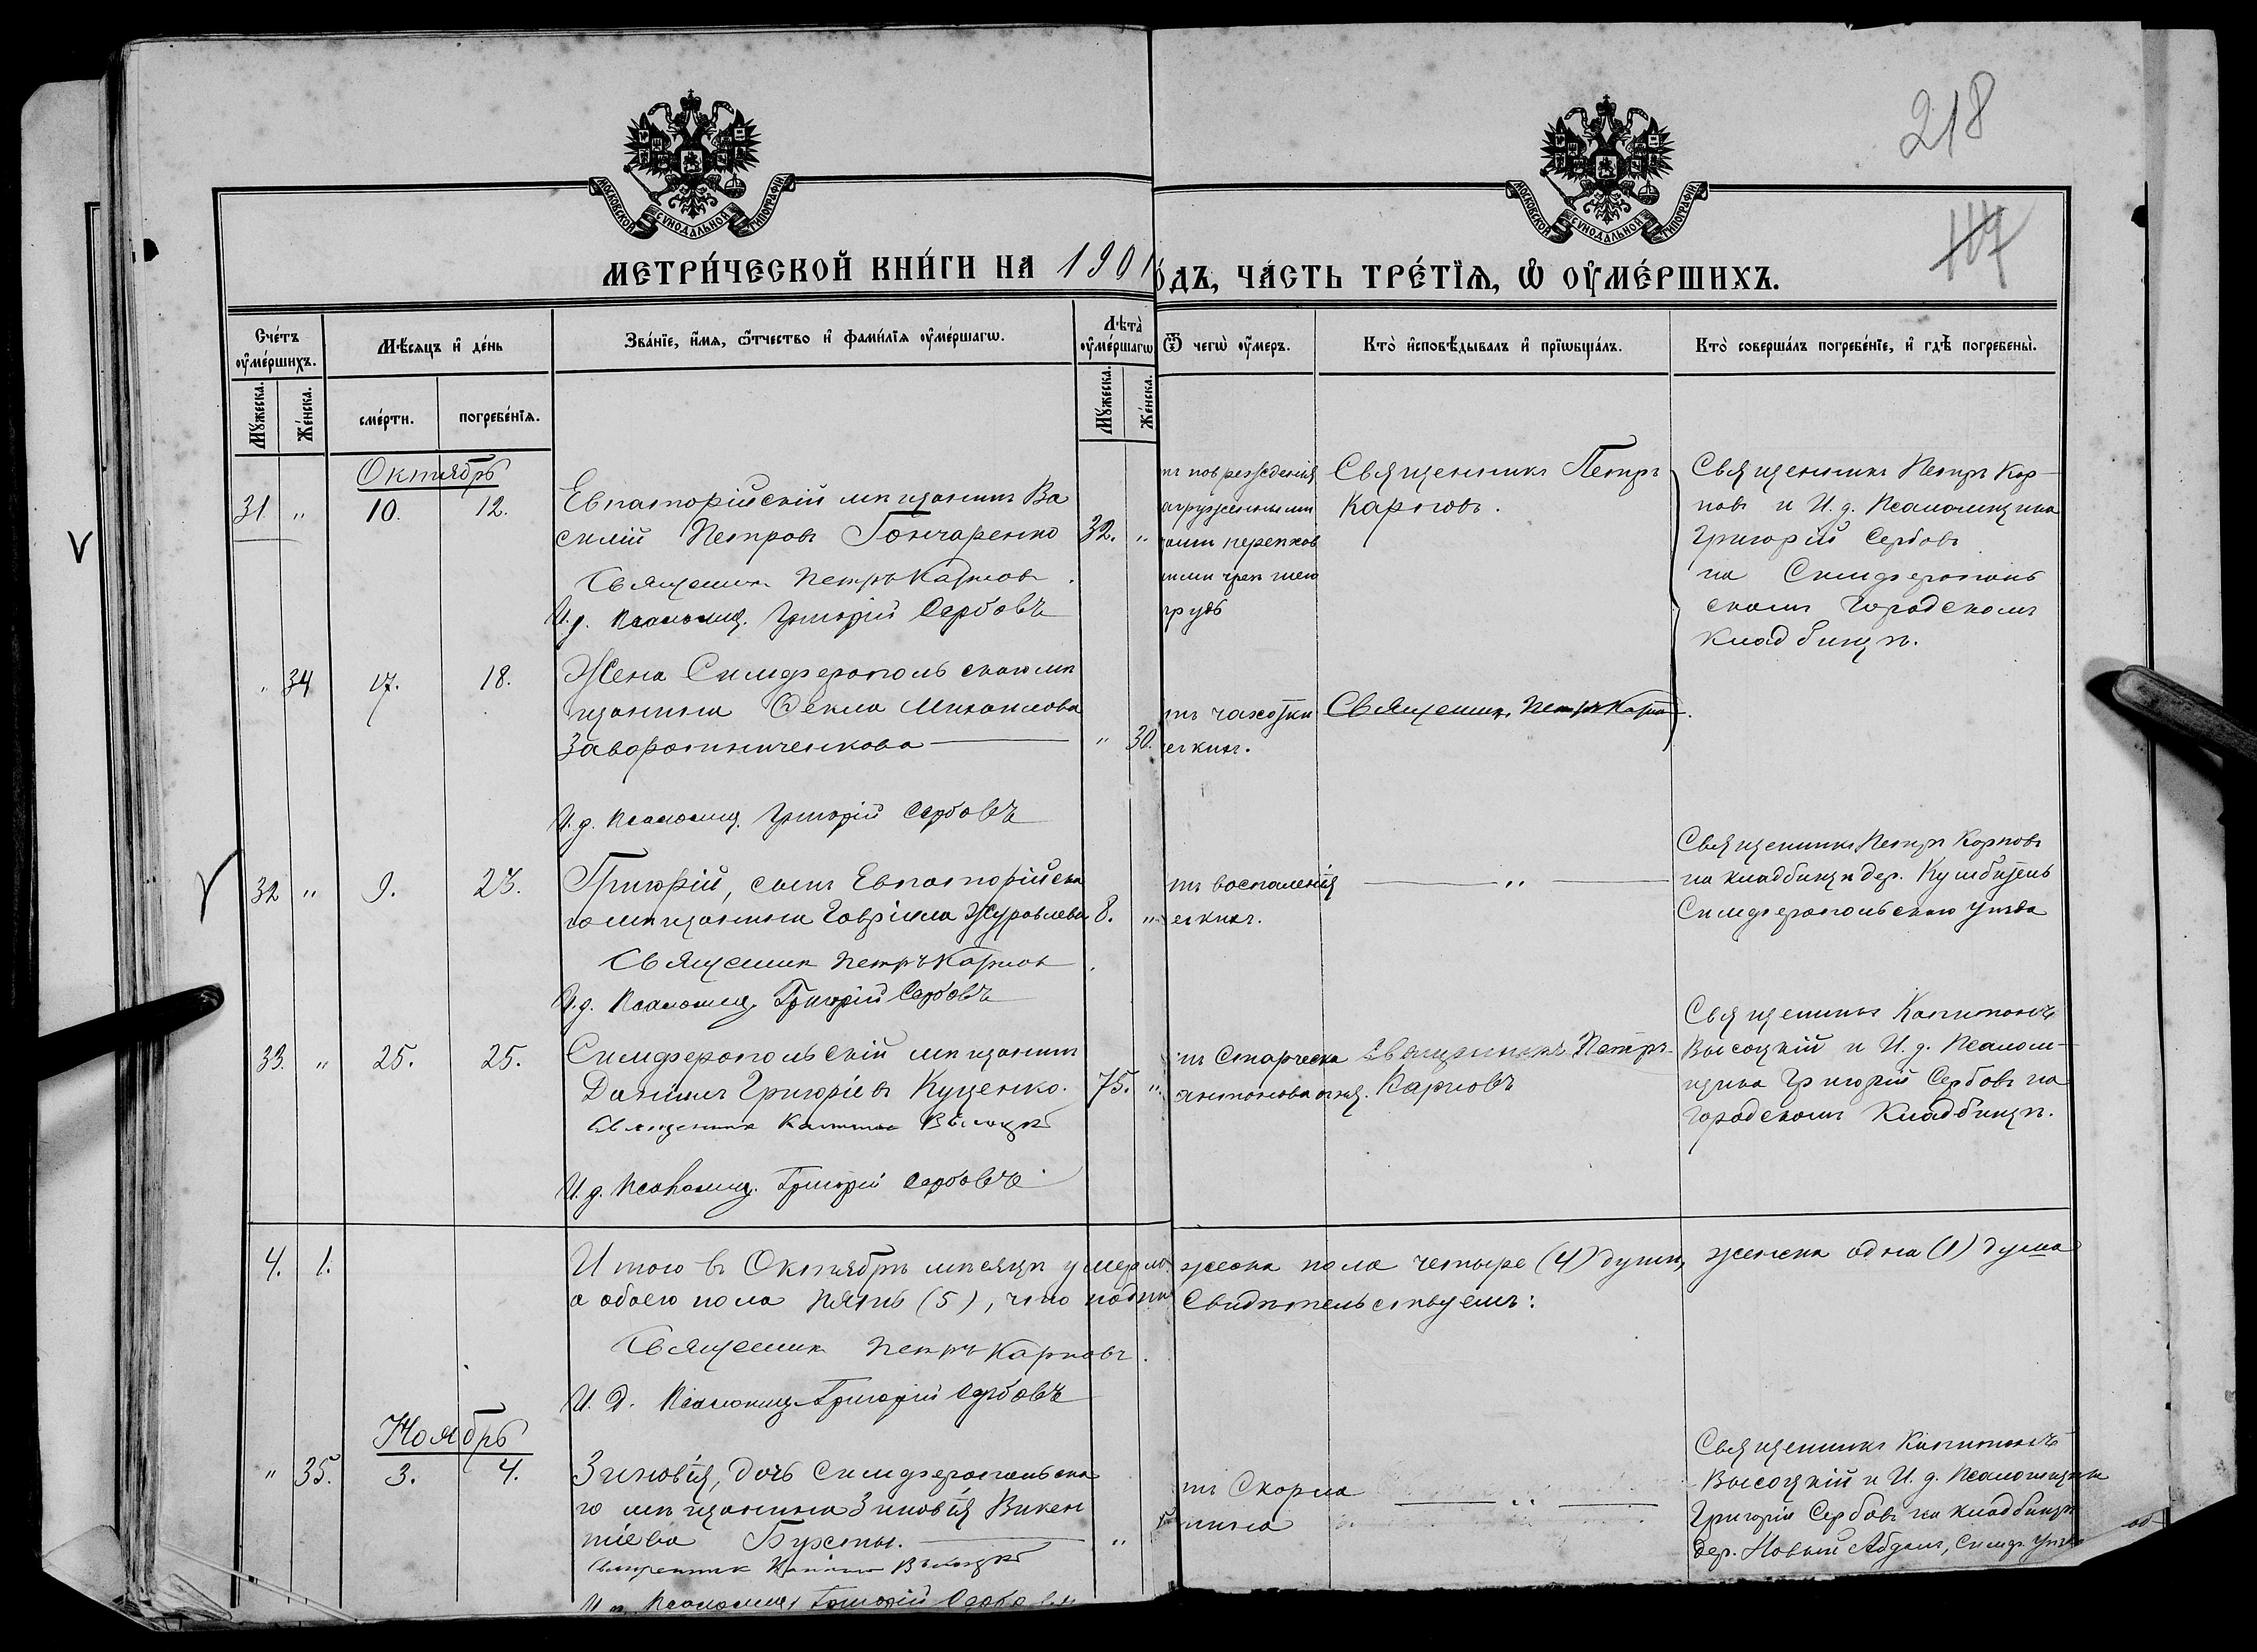 218
117
МОСКОВСКОЙ СУНОДАЛЬНОЙ ТИПОГРАФІИ
МОСКОВСКОЙ СУНОДАЛЬНОЙ ТИПОГРАФІИ
МЕТРИ́ЧЕСКОЙ КНИ́ГИ НА 1901
О́ДЪ, ЧА́СТЬ ТРЕ́ТЇѦ, Ѡ҆ ОУ҆МЕ́РШИХЪ.
Сче́тъ оу҆ме́ршихъ.
Мѣ́сяцъ и҆ де́нь
Зва́нїе, и҆́мя, ѻ҆́тчество и҆ фами́лїя оу҆ме́ршагѡ.
Лѣта̀ оу҆ме́ршагѡ
Ѿ чегѡ̀ оу҆́меръ.
Кто̀ и҆сповѣ́дывалъ и҆ прїѡбща́лъ.
Кто̀ соверша́лъ погребе́нїе, и҆ гдѣ̀ погребены̀.
Мꙋ́жеска.
Же́нска.
сме́рти.
погребе́нїѧ.
Мꙋ́жеска.
Же́нска.
Октябрь
31 " 10. 12.
Евпаторійскій мѣщанинъ Ва
силій Петровъ Гончаренко 32. "
Священникъ Петръ Карповъ.
И. д. Псаломщ. Григорій Сербовъ
тъ поврежденія
груди
Священникъ Петръ
Карповъ.
Священникъ Петръ Кар-
повъ и И. д. Псаломщика
Григорій Сербовъ
на Симферополь
скомъ Городскомъ
кладбищѣ.
" 34 17. 18.
Жена Симферопольскаго мѣ
щанина Ѳекла Михаилова
Заворотниченкова " 30.
И. д. Псаломщ. Григорій Сербовъ
тъ чахотки
егкихъ.
Священникъ Петръ Карповъ.
32 " 9. 23.
Григорій, сынъ Евпаторійска
го мѣщанина Гавріила Журавлева 8. "
Священникъ Петръ Карповъ
И. д. Псаломщ. Григорій Сербовъ
тъ воспаленія
егкихъ.
"
Священникъ Петръ Карповъ
на кладбищѣ дер.
Симферопольскаго уѣзда
33. " 25. 25.
Симферопольскій мѣщанинъ
Даніилъ Григоріевъ Куценко. 75. "
Священникъ Капитонъ Высоцкій
И. д. Псаломщ. Григорій Сербовъ
тъ Старческа
антонова огня.
Священникъ Петръ
Карповъ
Священникъ Капитонъ
Высоцкій и И. д. Псалом-
щика Григорій Сербовъ на
городскомъ кладбищѣ.
4. 1.
Итого въ Октябрѣ мѣсяцѣ умерло
жеска пола четыре (4) души, женска одна (1) душа
а обоего пола пять (5), что подпи
Свидѣтельствуемъ:
Священникъ Петръ Карповъ.
И. Д. Псаломщ. Григорій Сербовъ
Ноябрь
" 35. 3. 4.
Зиновія, дочь Симферопольска
го мѣщанина Зиновія Викен
тіева Бухты. "
Священникъ Капитонъ Высоцкій
Псаломщ. Григорій Сербовъ
тъ Скорла
тина
"
Священникъ Капитонъ
Высоцкій и И. д. Псаломщика
Григорій Сербовъ на кладбищѣ
дер. Новый Абдалъ, Симф. уѣзда